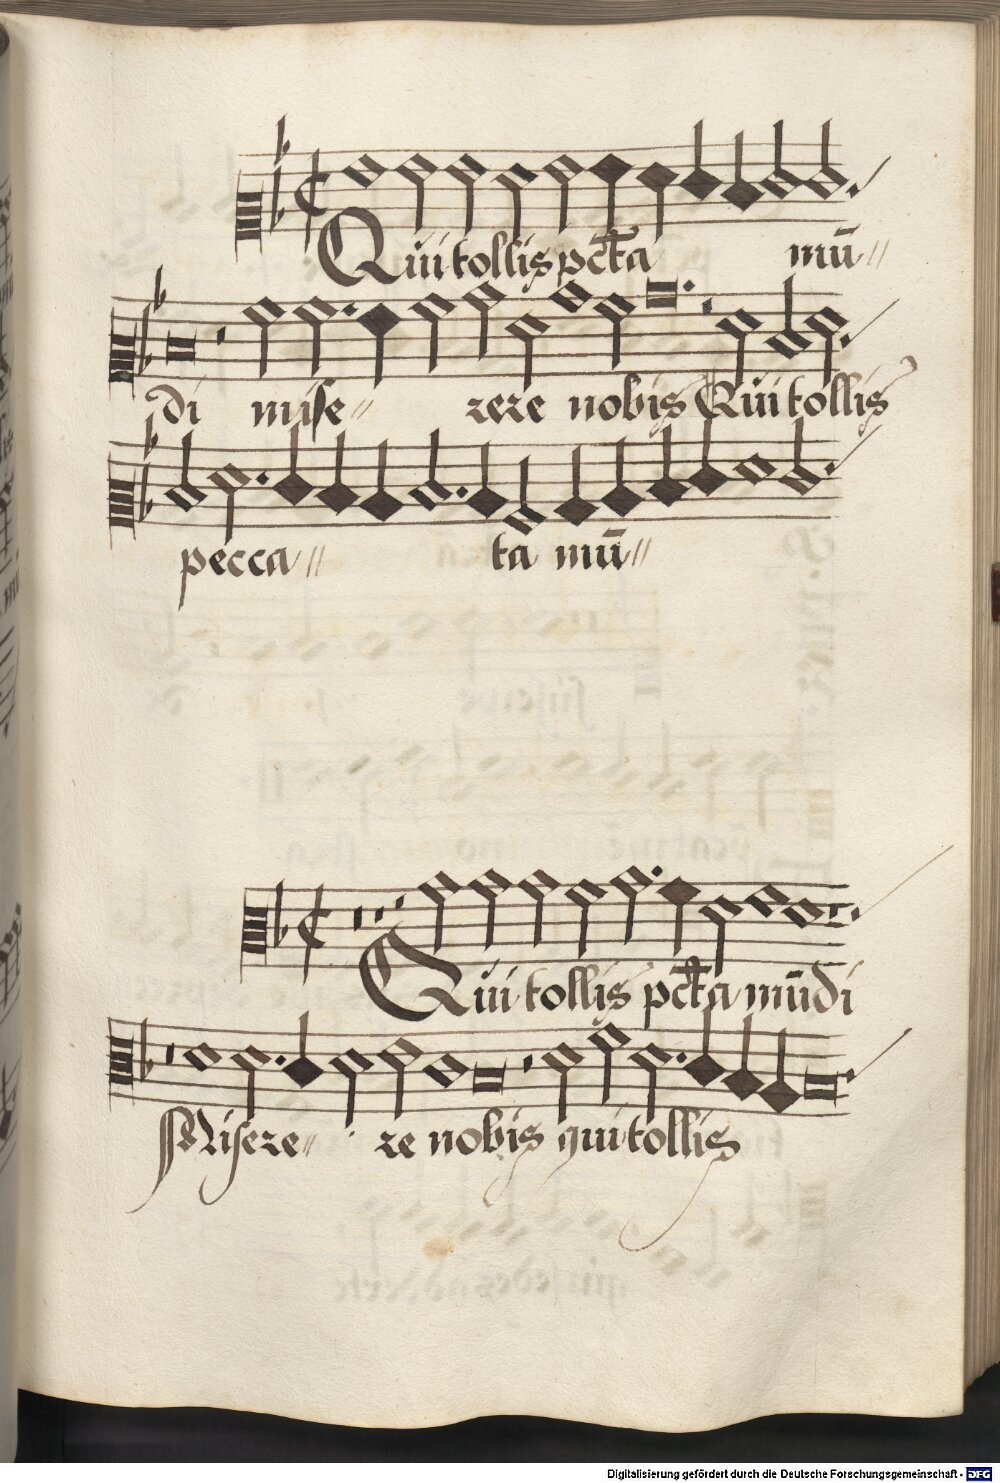 Qui tollis pcc̄ta mū
di mise rere nobis Qui tollis
pecca ta mū
Qui tollis pcc̄ta mūdi
Misere re nobis qui tollis
Digitalisierung gefördert durch die Deutsche Forschungsgemeinschaft - DFG